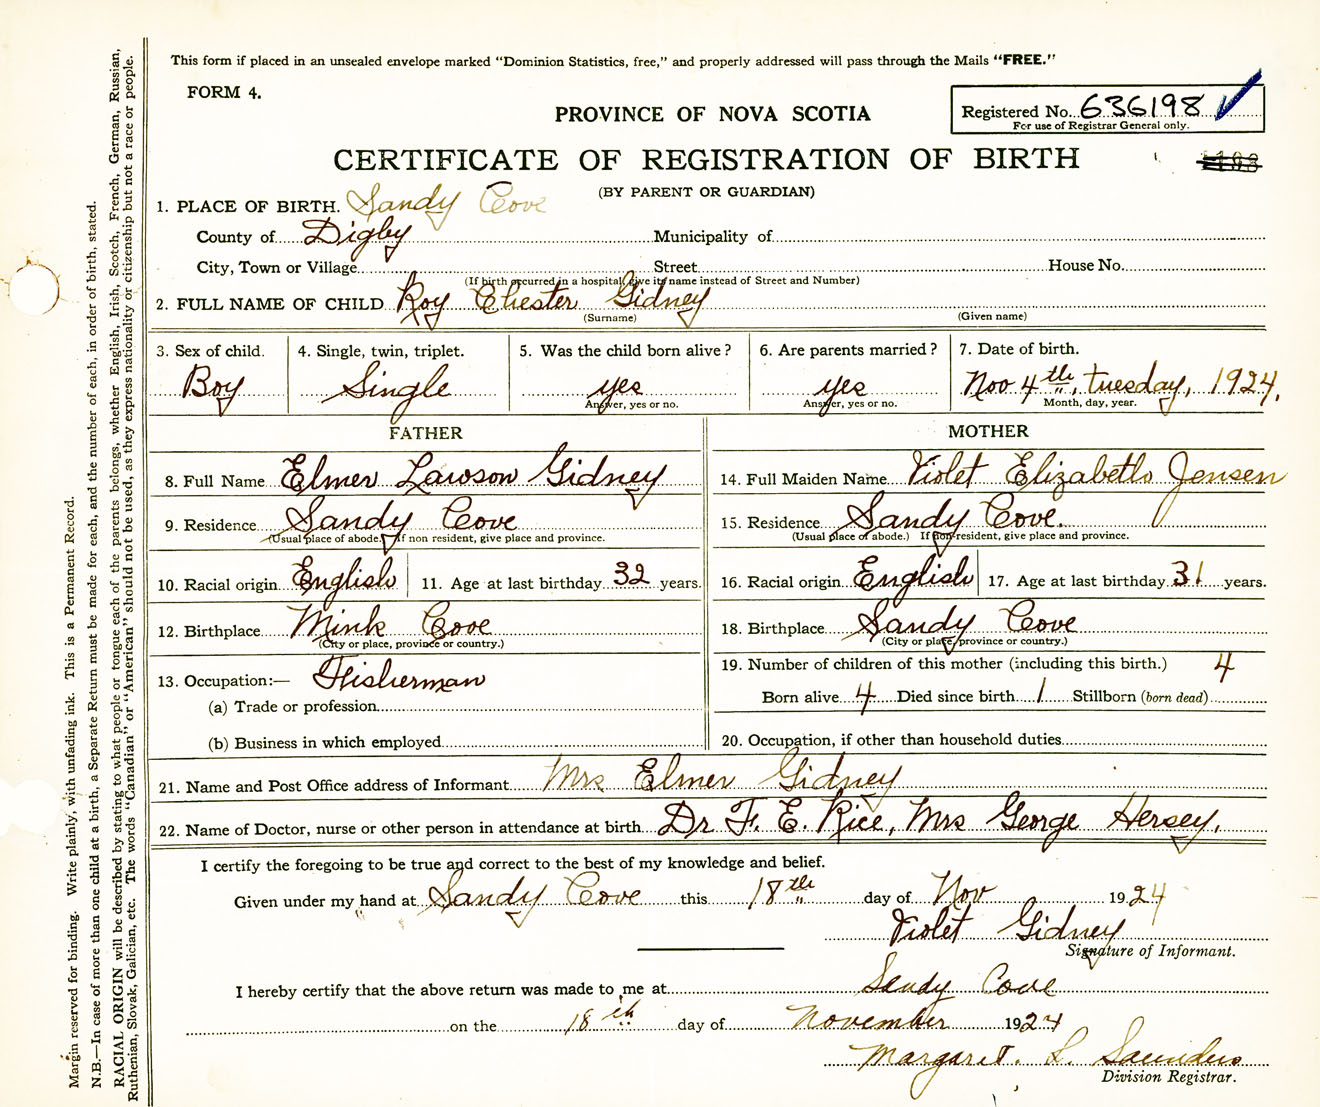 This form if placed in an unsealed envelope marked “Dominion Statistics, free,” and properly addressed will pass through the Mails “FREE.”
FORM 4.
PROVINCE OF NOVA SCOTIA
Registered No. 636198
For use of Registrar General only.
CERTIFICATE OF REGISTRATION OF BIRTH
(BY PARENT OR GUARDIAN)
1. PLACE OF BIRTH. Sandy Cove
County of Digby Municipality of
City, Town or Village Street House No.
(If birth occurred in a hospital give its name instead of Street and Number)
2. FULL NAME OF CHILD Roy Chester Gidney
(Surname) (Given name)
3. Sex of child. 4. Single, twin, triplet. 5. Was the child born alive? 6. Are parents married? 7. Date of birth.
Boy Single yes yes Nov 4th, tuesday, 1924.
Answer, yes or no. Answer, yes or no. Month, day, year.
FATHER MOTHER
8. Full Name Elmer Lawson Gidney 14. Full Maiden Name Violet Elizabeth Jensen
9. Residence Sandy Cove 15. Residence Sandy Cove.
(Usual place of abode.) If non resident, give place and province. (Usual place of abode.) If non-resident, give place and province.
10. Racial origin English 11. Age at last birthday 32 years. 16. Racial origin English 17. Age at last birthday 31 years.
12. Birthplace Mink Cove 18. Birthplace Sandy Cove
(City or place, province or country.) (City or place, province or country.)
13. Occupation:— Fisherman 19. Number of children of this mother (including this birth.) 4
(a) Trade or profession Born alive 4 Died since birth 1 Stillborn (born dead)
(b) Business in which employed 20. Occupation, if other than household duties
21. Name and Post Office address of Informant Mrs Elmer Gidney
22. Name of Doctor, nurse or other person in attendance at birth Dr F. E. Rice, Mrs George Hersey.
I certify the foregoing to be true and correct to the best of my knowledge and belief.
Given under my hand at Sandy Cove this 18th day of Nov 1924
Violet Gidney
Signature of Informant.
I hereby certify that the above return was made to me at Sandy Cove
on the 18th day of November 1924
Margaret. L. Saunders
Division Registrar.
Margin reserved for binding. Write plainly, with unfading ink. This is a Permanent Record.
N.B.—In case of more than one child at a birth, a Separate Return must be made for each, and the number of each, in order of birth, stated.
RACIAL ORIGIN will be described by stating to what people or tongue each of the parents belongs, whether English, Irish, Scotch, French, German, Russian,
Ruthenian, Slovak, Galician, etc. The words “Canadian” or “American” should not be used, as they express nationality or citizenship but not a race or people.